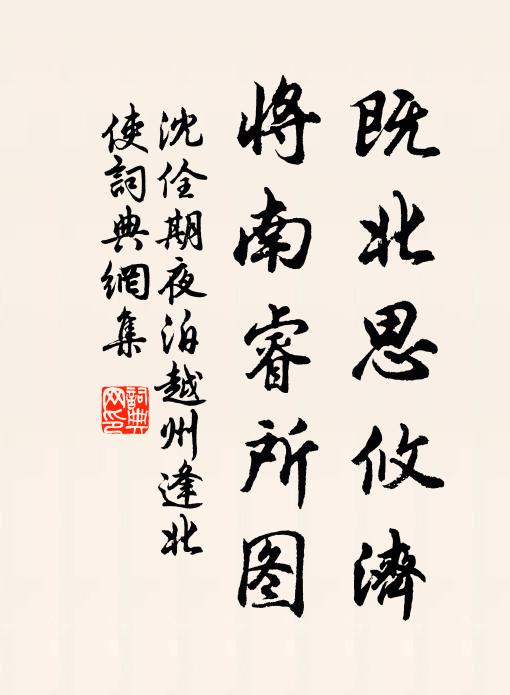 既北思攸濟
将南睿所图
沈佺期夜泊越州逢北
使詞典網集
詞典
网印